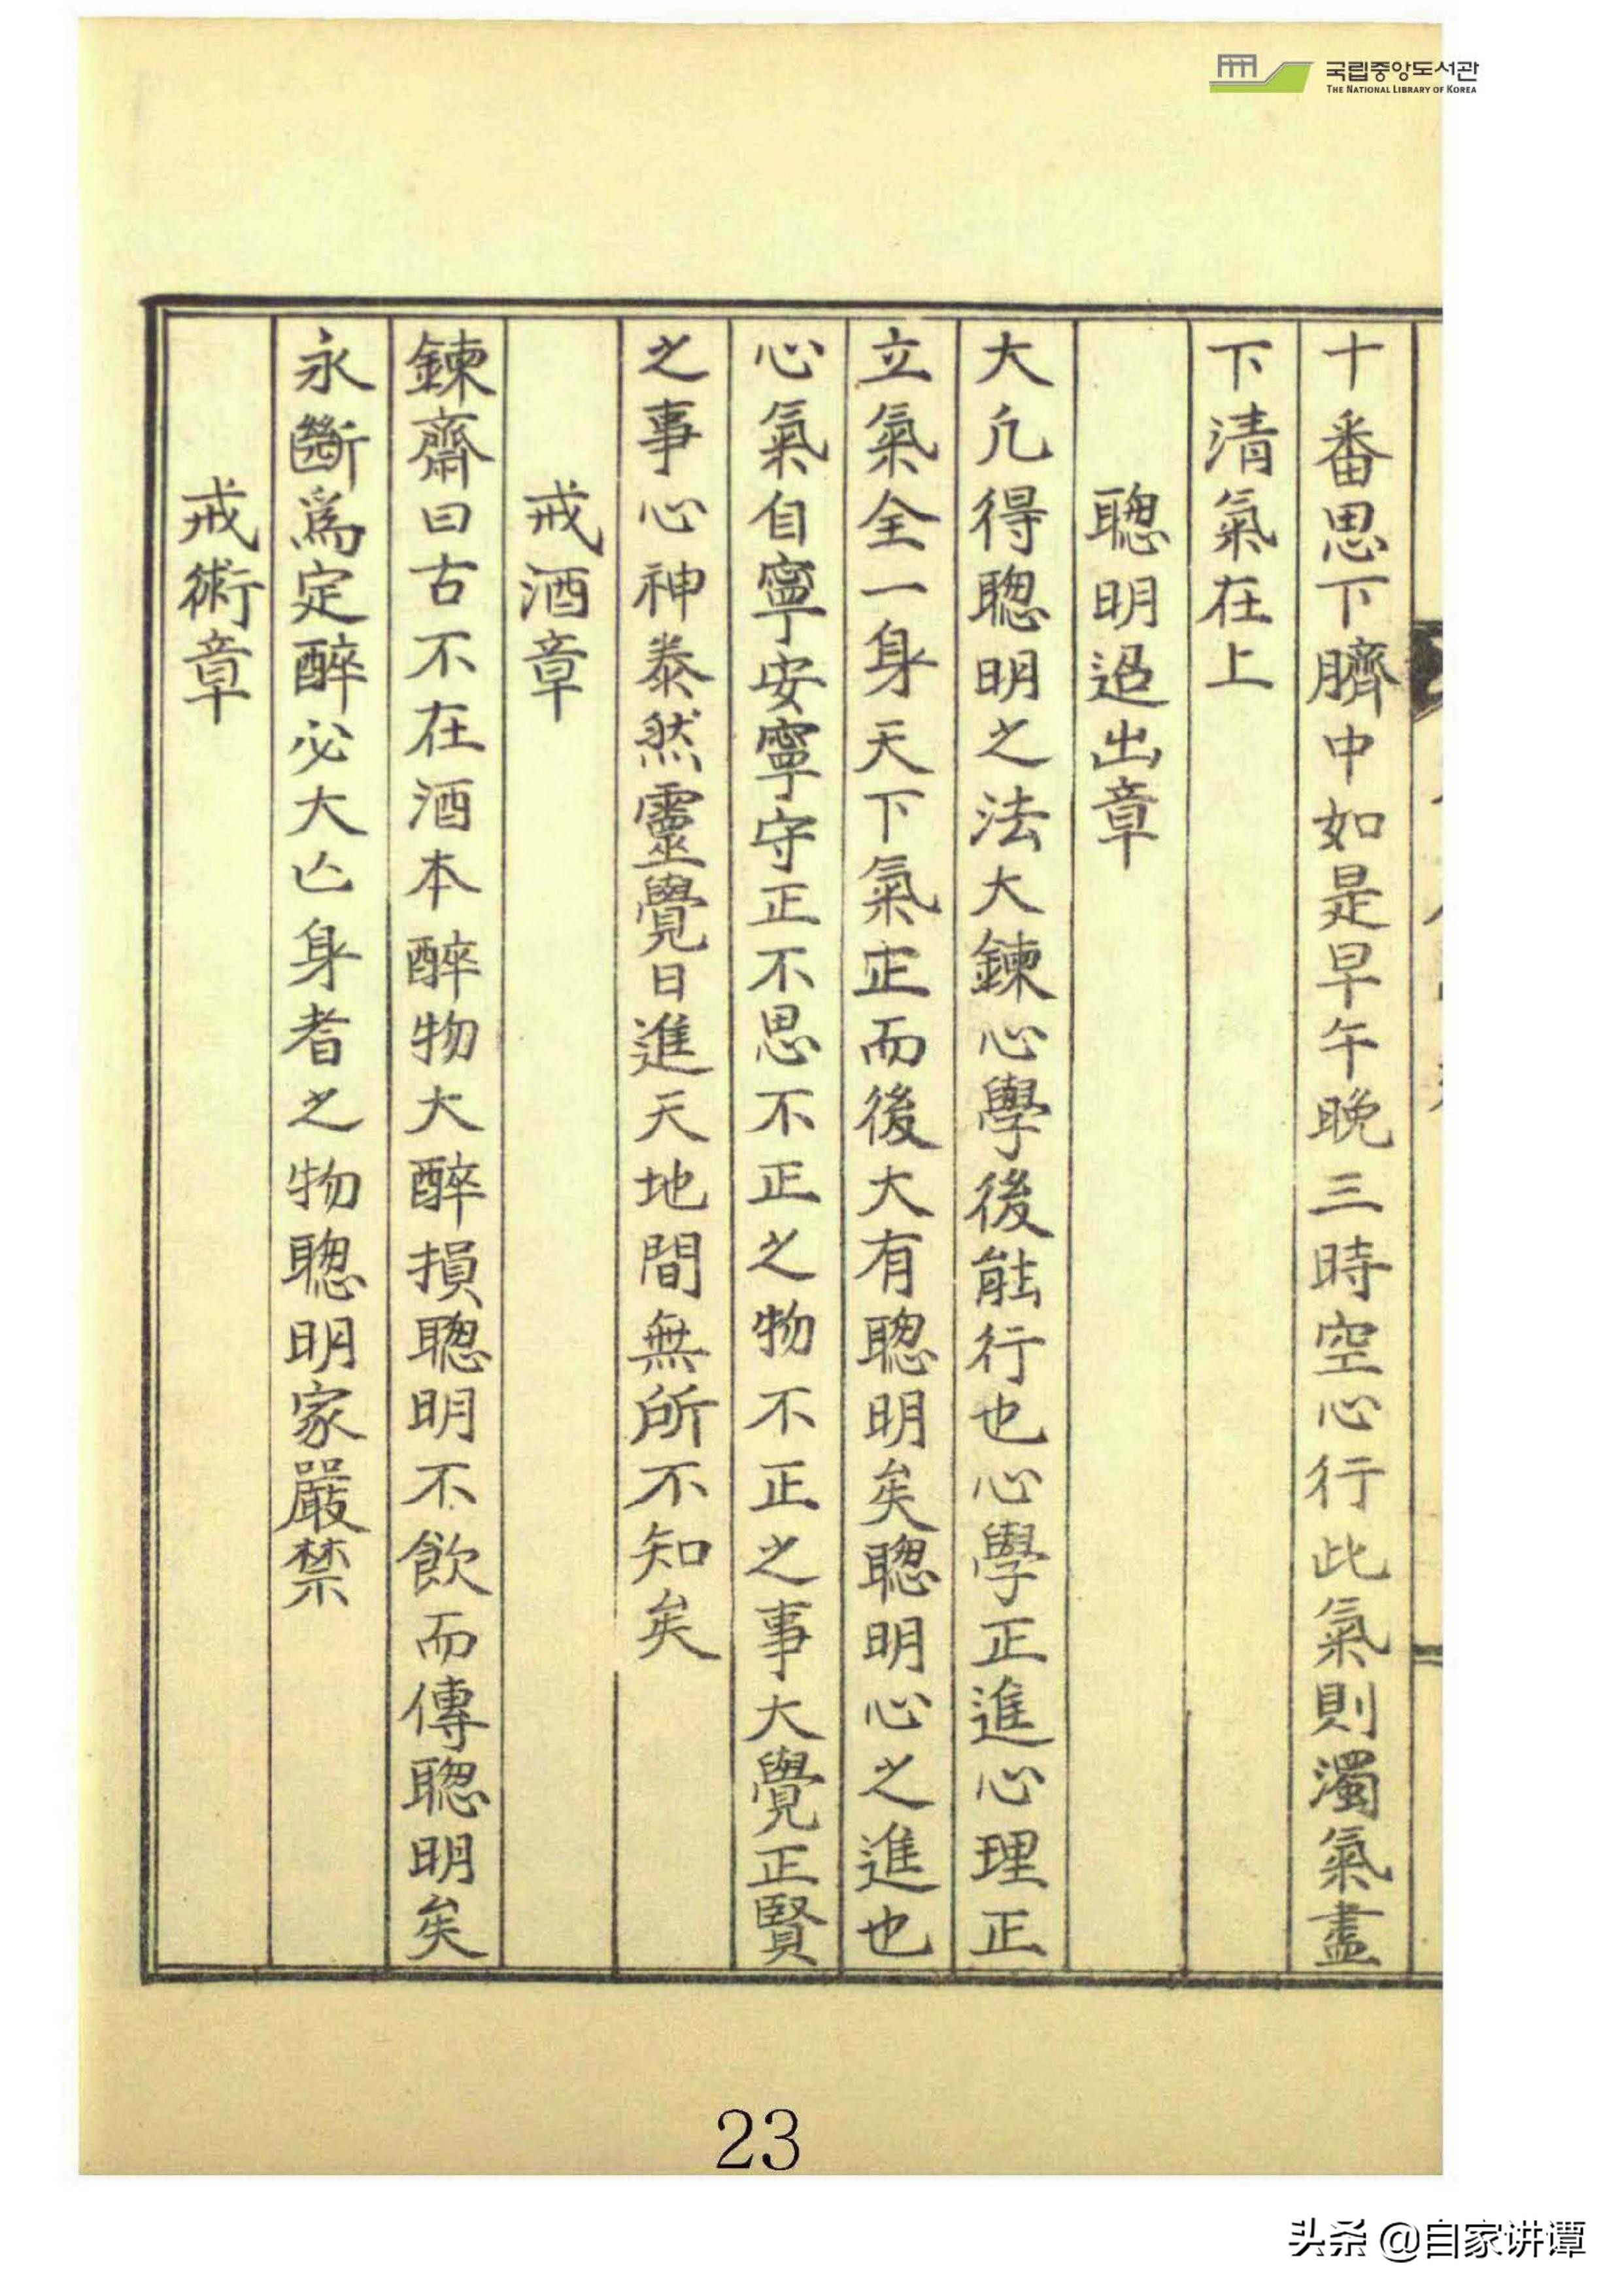 국립중앙도서관
THE NATIONAL LIBRARY OF KOREA
十番思下臍中如是早午晩三時空心行此氣則濁氣盡
下清氣在上
聰明過出章
大凢得聰明之法大鍊心學後能行也心學正進心理正
立氣全一身天下氣正而後大有聰明矣聰明心之進也
心氣自寧安寧守正不思不正之物不正之事大覺正賢
之事心神泰然靈覺日進天地間無所不知矣
戒酒章
鍊齋曰古不在酒本醉物大醉損聰明不飲而傳聰明矣
永斷爲定醉必大亡身者之物聰明家嚴禁
戒術章
23
头条 @自家讲谭